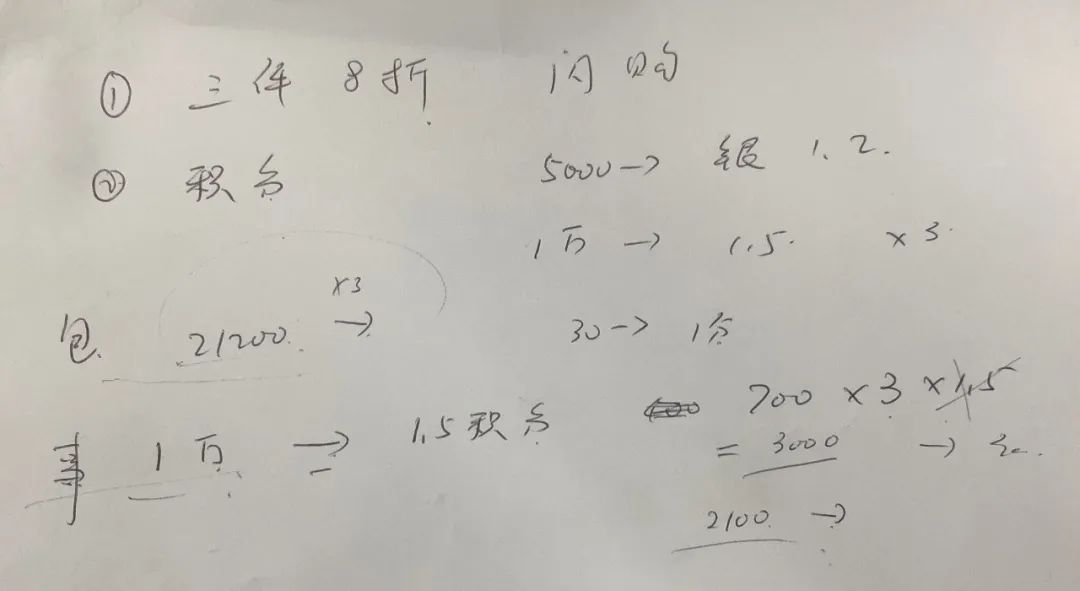 ① 三件 8折 闪购
② 积分 5000→ 银 1.2.
1万 → 1.5. ×3.
包 21200. ×3 → 30→ 1分
700 ×3 ×1.5
1万 → 1.5积分 = 3000 →
2100 →